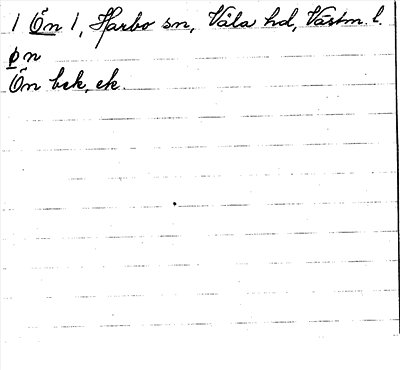 1 Ön 1, Harbo sn, Våla hd, Västm. l.
ø̩n
Ön bek, ek.